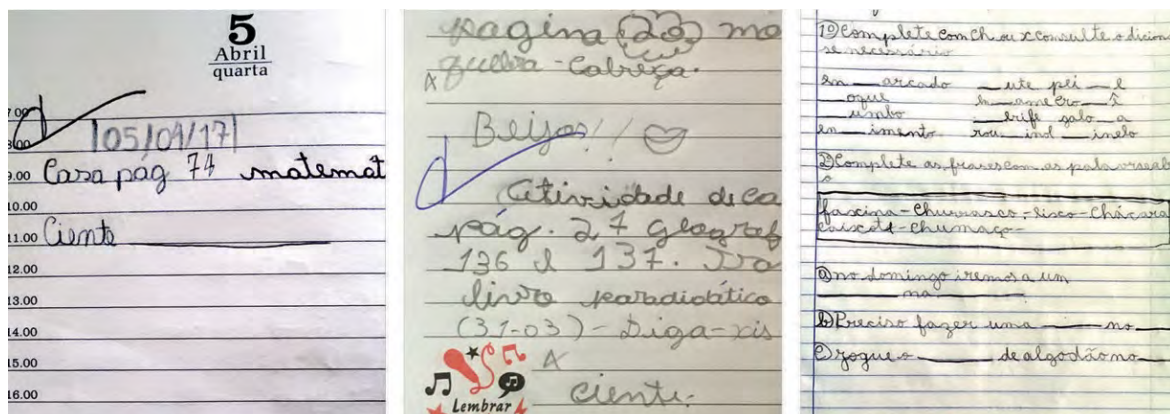 5
Abril
quarta
7.00
8.00
05/04/17
9.00 Casa pág 74 matemát
10.00
11.00 Ciente
12.00
13.00
14.00
15.00
16.00
pagina (20) mo
quebra-Cabeça.
A
Beijos!!
Atividade de ca
pág. 27 Geograf
136 e 137. Tra
livro paradidático
(31-03)-Diga-xis
A
Lembrar
Ciente:
1º) Complete com ch ou x consulte o dicion
se necessário
en__arcado __ute pei__e
__oque __i
__umbo __erife galo__a
en__imento rou__inol __inelo
2) Complete as frases com as palavras
faxina-churrasco-lixo-chácara
caixote-chumaço-
a) no domingo iremos a um
____na____.
b) Preciso fazer uma ____ no
c) jogue o ____ de algodão no